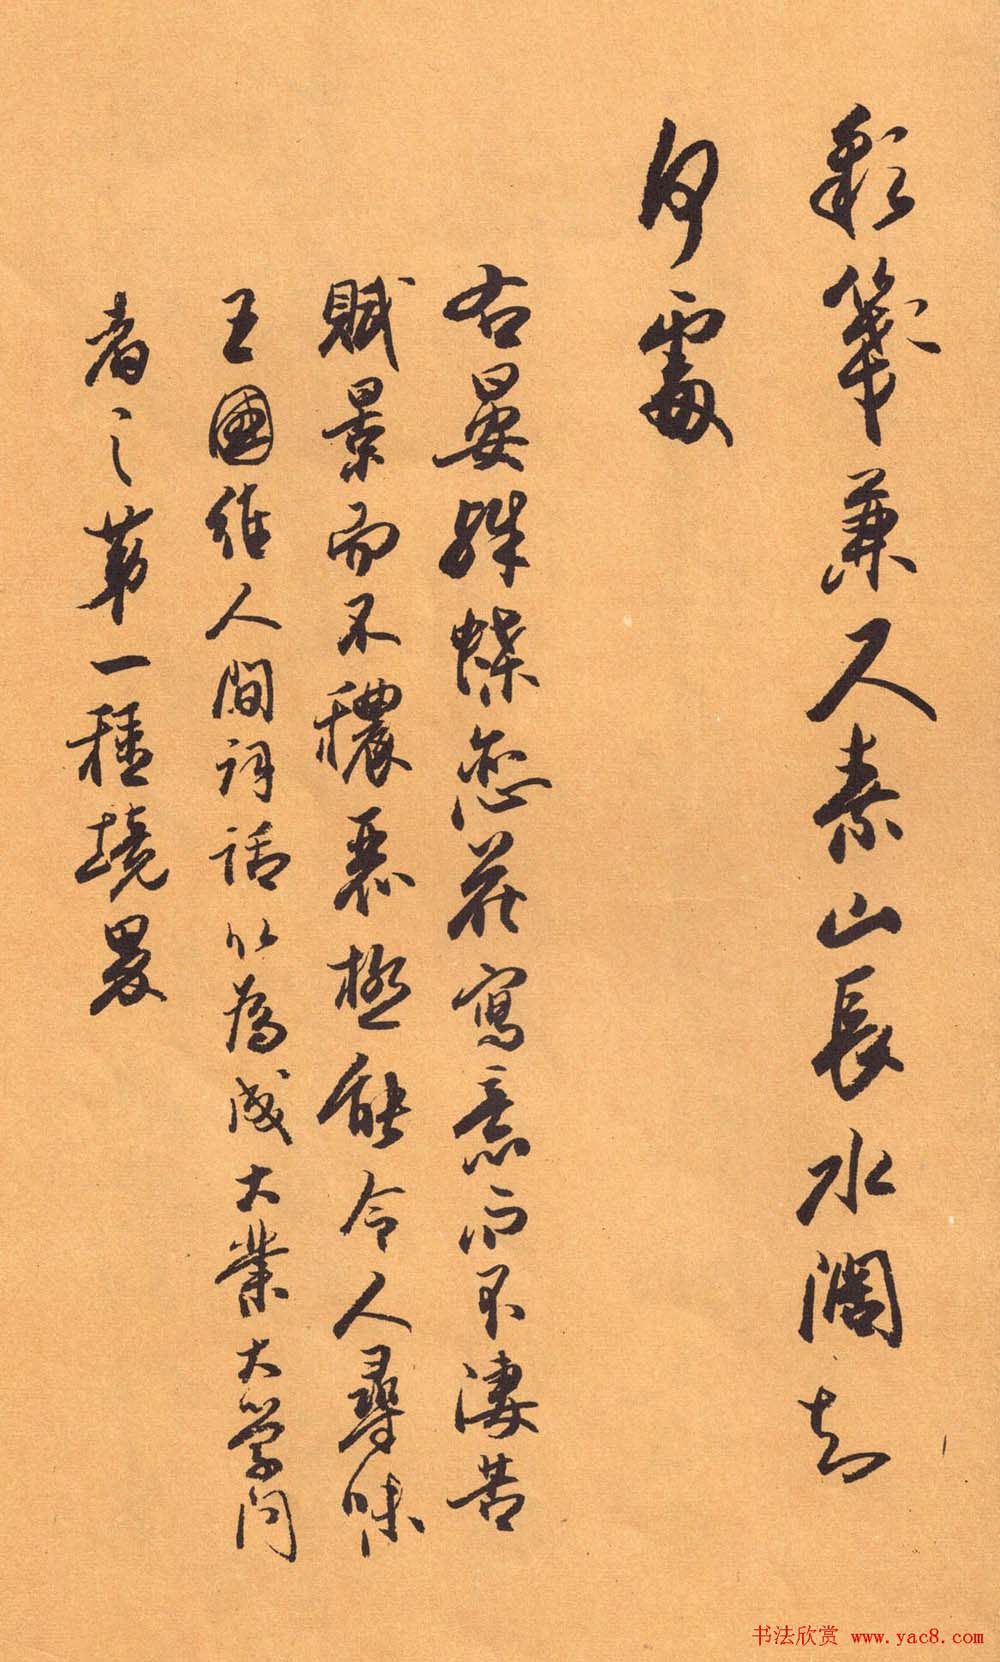 彩箋兼尺素山長水闊知
何處
右晏殊蝶恋花寫意而不凄苦
賦景而不穠麗極能令人尋味
王國維人間詞話以為成大業大學问
者之第一種境界
书法欣赏 www.yac8.com